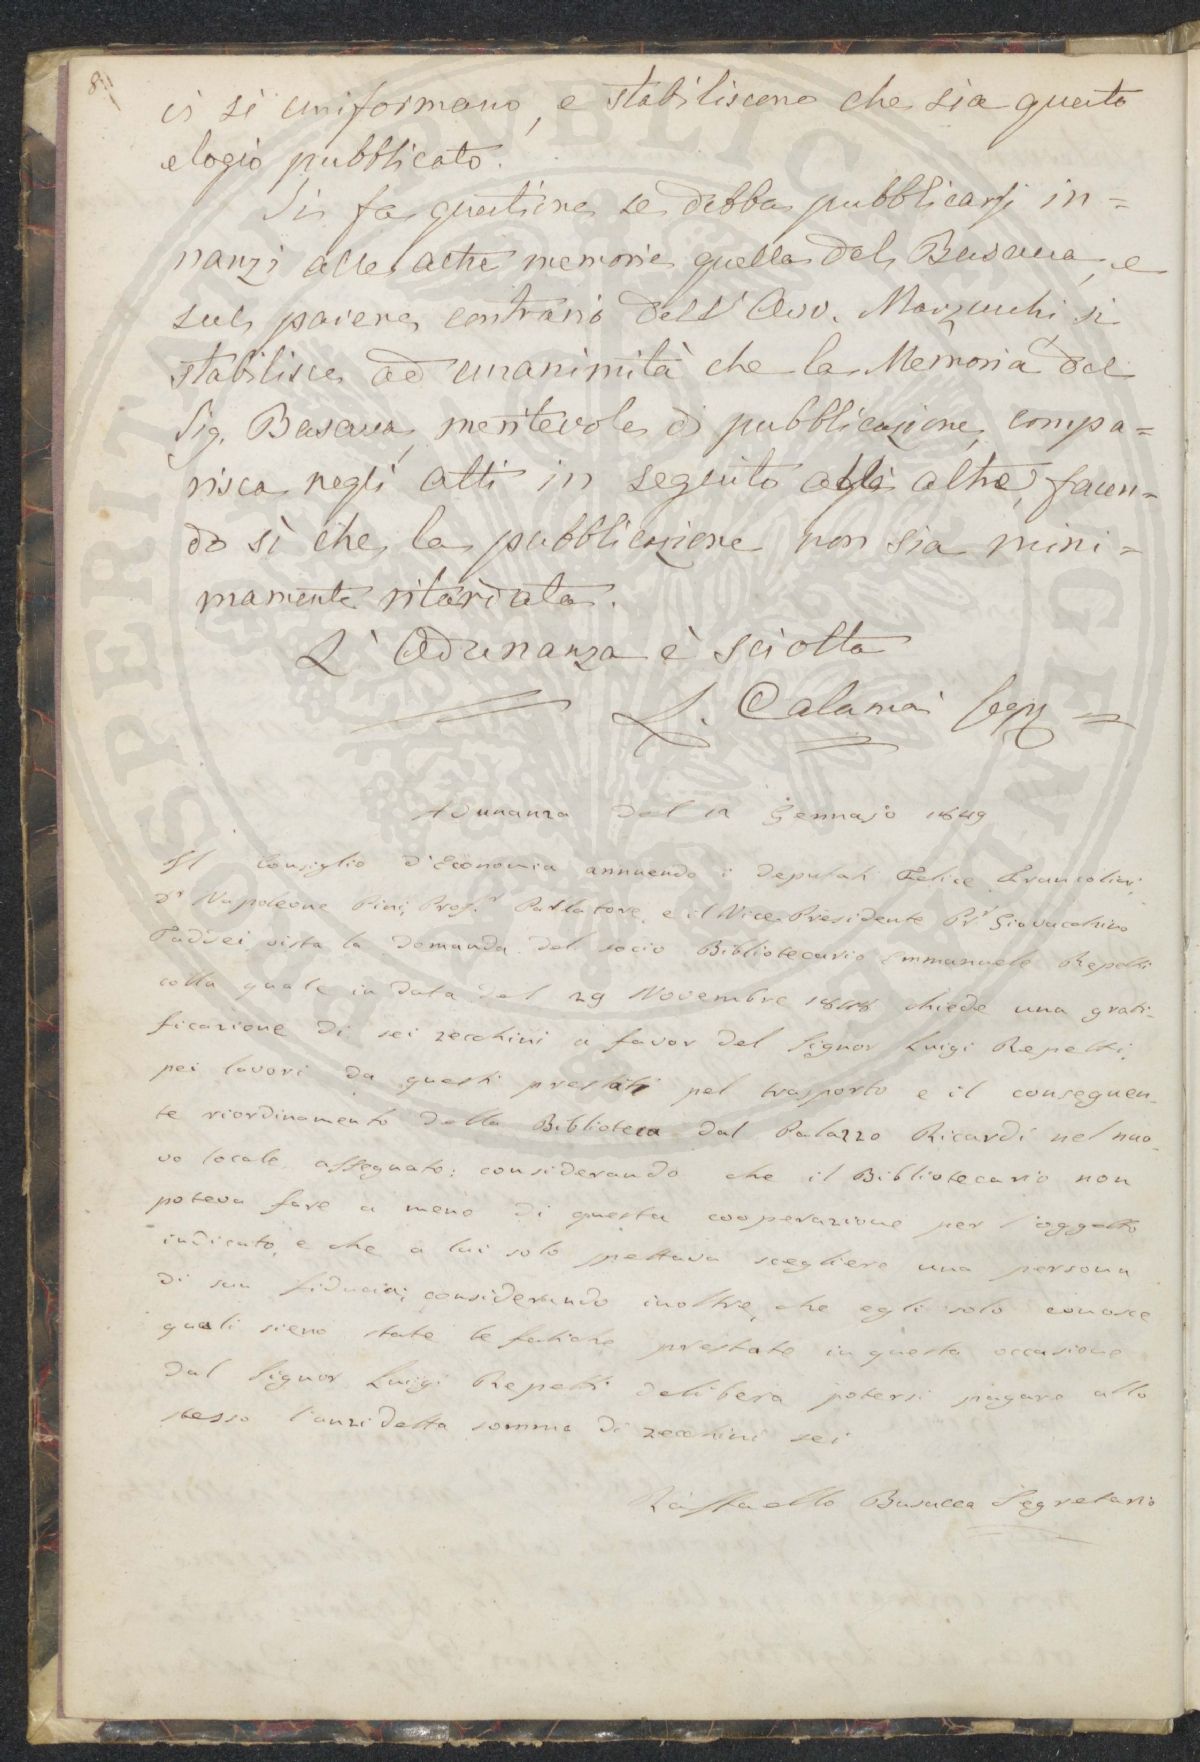 8
ci si uniformano, e stabiliscono che sia questo
elogio pubblicato.
Si fa questione se debba pubblicarsi in=
nanzi alle altre memorie quella del Busacca, e
sul parere contrario dell'Avv. Marzucchi si
stabilisce ad unanimità che la Memoria del
Sig. Busacca, meritevole di pubblicazione, compa=
risca negli atti in seguito alle altre, facen=
do sì che la pubblicazione non sia mini=
mamente ritardata.
L'Adunanza è sciolta
L. Calamai Seg.
Adunanza del 12 Gennajo 1849
Il Consiglio d'Economia annuendo i deputati Felice Francolini,
Dr Napoleone Pini, Prof. Parlatore, e il Vice Presidente Pr Giovacchino
Taddei, vista la domanda del socio Bibliotecario Emmanuele Repetti
colla quale in data del 29 Novembre 1848 chiede una grati-
ficazione di sei zecchini a favor del Signor Luigi Repetti,
pei lavori da questi prestati pel trasporto e il conseguen-
te riordinamento della Biblioteca dal Palazzo Ricardi nel nuo-
vo locale assegnato: considerando che il Bibliotecario non
poteva fare a meno di questa cooperazione per l'oggetto
indicato, e che a lui solo spettava scegliere una persona
di sua fiducia; considerando inoltre, che egli solo conosce
quali sieno state le fatiche prestate in questa occasione
dal Signor Luigi Repetti delibera potersi pagare allo
stesso l'anzidetta somma di zecchini sei
Raffaello Busacca Segretario
PROSPERITATI PUBLICAE AUGENDAE